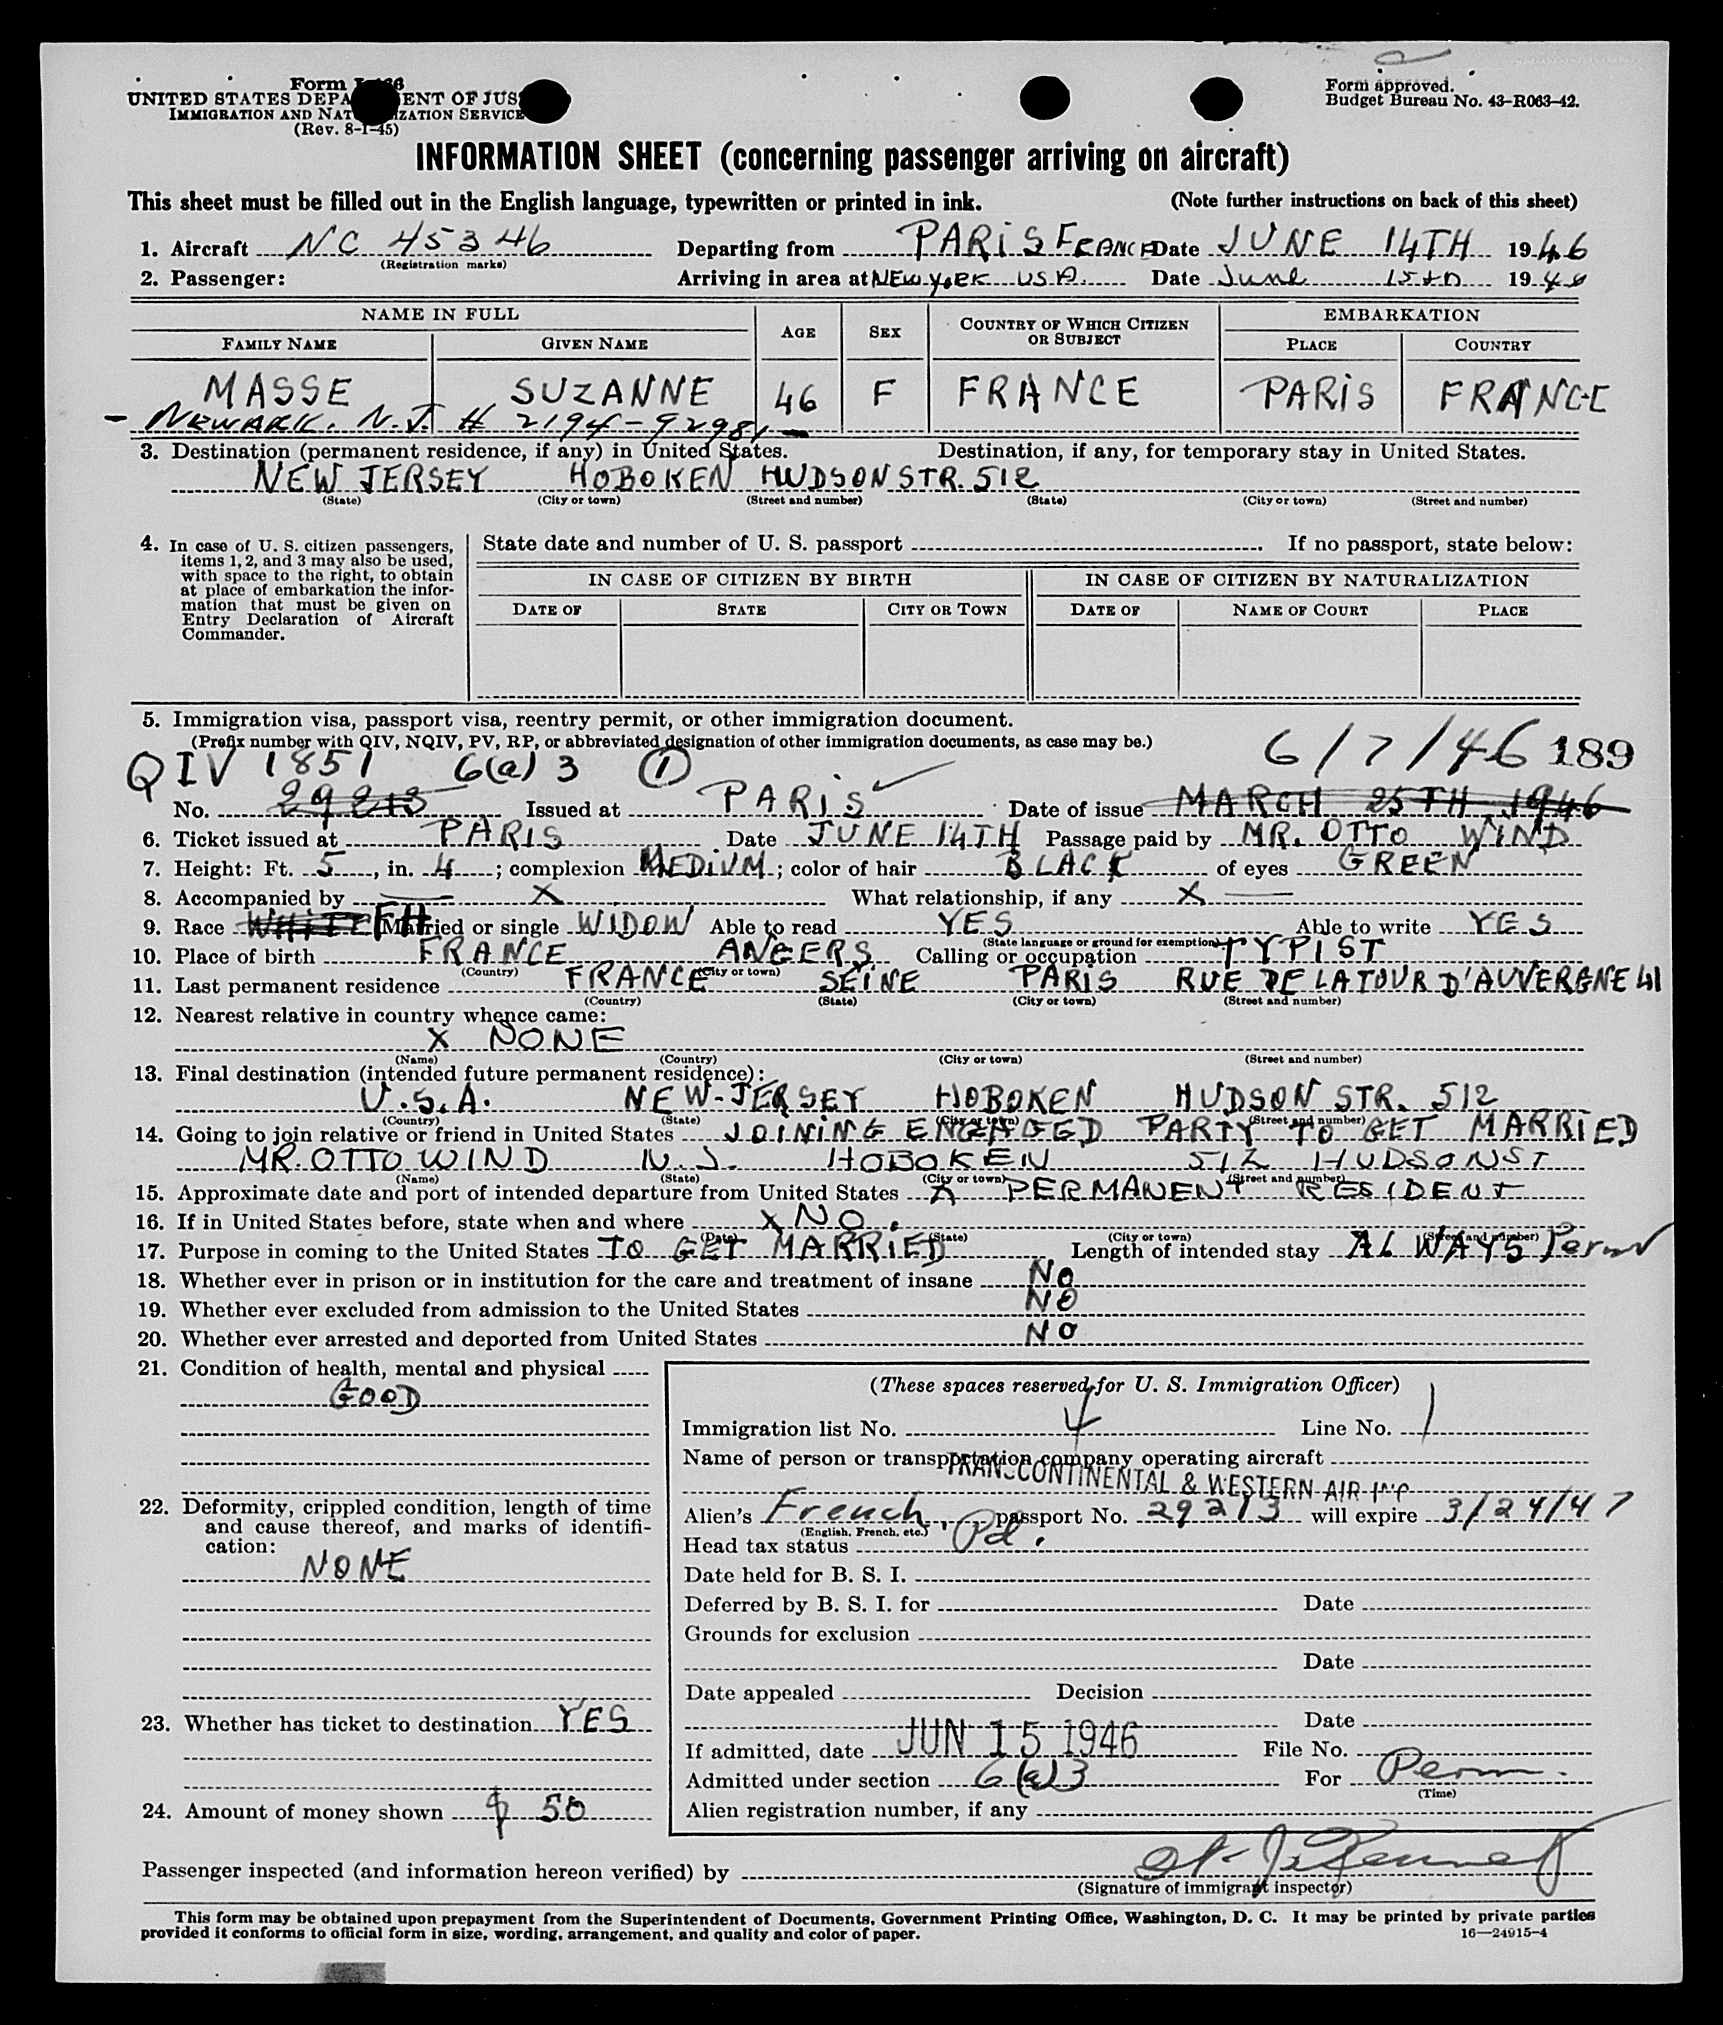 Form I-466
UNITED STATES DEPARTMENT OF JUSTICE
IMMIGRATION AND NATURALIZATION SERVICE
(Rev. 8-1-45)
Form approved.
Budget Bureau No. 43-R063-42.
INFORMATION SHEET (concerning passenger arriving on aircraft)
This sheet must be filled out in the English language, typewritten or printed in ink. (Note further instructions on back of this sheet)
1. Aircraft NC 45346 Departing from PARIS FRANCE Date JUNE 14TH 1946
(Registration marks)
2. Passenger: Arriving in area at NEW YORK USA. Date June 15th 1946
NAME IN FULL AGE SEX COUNTRY OF WHICH CITIZEN OR SUBJECT EMBARKATION
FAMILY NAME GIVEN NAME PLACE COUNTRY
MASSE SUZANNE 46 F FRANCE PARIS FRANCE
- NEWARK. N.J. # 2194-92981 -
3. Destination (permanent residence, if any) in United States. Destination, if any, for temporary stay in United States.
NEW JERSEY HOBOKEN HUDSON STR. 512
(State) (City or town) (Street and number) (State) (City or town) (Street and number)
4. In case of U. S. citizen passengers, items 1, 2, and 3 may also be used, with space to the right, to obtain at place of embarkation the information that must be given on Entry Declaration of Aircraft Commander.
State date and number of U. S. passport . If no passport, state below:
IN CASE OF CITIZEN BY BIRTH IN CASE OF CITIZEN BY NATURALIZATION
DATE OF STATE CITY OR TOWN DATE OF NAME OF COURT PLACE
5. Immigration visa, passport visa, reentry permit, or other immigration document.
(Prefix number with QIV, NQIV, PV, RP, or abbreviated designation of other immigration documents, as case may be.)
QIV 1851 6(a) 3 1 6/7/46 189
No. 29213 Issued at PARIS Date of issue MARCH 25TH 1946
6. Ticket issued at PARIS Date JUNE 14TH Passage paid by MR. OTTO WIND
7. Height: Ft. 5, in. 4; complexion MEDIUM; color of hair BLACK of eyes GREEN
8. Accompanied by X What relationship, if any X
9. Race WHITE FH Married or single WIDOW Able to read YES Able to write YES
(State language or ground for exemption)
10. Place of birth FRANCE ANGERS Calling or occupation TYPIST
(Country) (City or town)
11. Last permanent residence FRANCE SEINE PARIS RUE DE LA TOUR D'AUVERGNE 41
(Country) (State) (City or town) (Street and number)
12. Nearest relative in country whence came:
X NONE
(Name) (Country) (City or town) (Street and number)
13. Final destination (intended future permanent residence):
U.S.A. NEW-JERSEY HOBOKEN HUDSON STR. 512
(Country) (State) (City or town) (Street and number)
14. Going to join relative or friend in United States JOINING ENGAGED PARTY TO GET MARRIED
MR. OTTO WIND N.J. HOBOKEN 512 HUDSON ST
(Name) (State) (City or town) (Street and number)
15. Approximate date and port of intended departure from United States X PERMANENT RESIDENT
16. If in United States before, state when and where X NO.
(Date) (State) (City or town) (Street and number)
17. Purpose in coming to the United States TO GET MARRIED Length of intended stay ALWAYS Perm
18. Whether ever in prison or in institution for the care and treatment of insane NO
19. Whether ever excluded from admission to the United States NO
20. Whether ever arrested and deported from United States NO
21. Condition of health, mental and physical
GOOD
22. Deformity, crippled condition, length of time and cause thereof, and marks of identification:
NONE
23. Whether has ticket to destination YES
24. Amount of money shown $ 50
(These spaces reserved for U. S. Immigration Officer)
Immigration list No. 4 Line No. 1
Name of person or transportation company operating aircraft
TRANSCONTINENTAL & WESTERN AIR INC
Alien's French, passport No. 29213 will expire 3/24/47
(English, French, etc.)
Head tax status Pd.
Date held for B. S. I.
Deferred by B. S. I. for Date
Grounds for exclusion
Date
Date appealed Decision
Date
If admitted, date JUN 15 1946 File No.
Admitted under section 6(a)3 For Perm.
(Time)
Alien registration number, if any
Passenger inspected (and information hereon verified) by
(Signature of immigrant inspector)
This form may be obtained upon prepayment from the Superintendent of Documents, Government Printing Office, Washington, D. C. It may be printed by private parties
provided it conforms to official form in size, wording, arrangement, and quality and color of paper. 16—24915-4